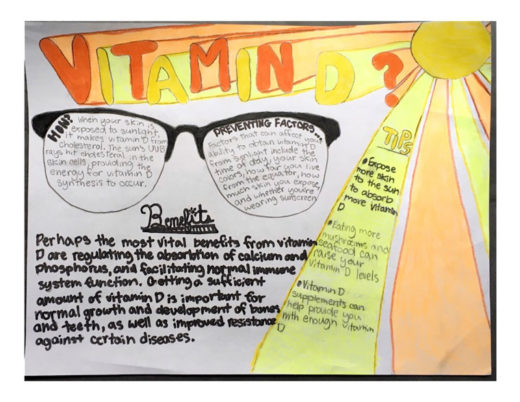 VITAMIN D?
HOW? When your skin is
exposed to sunlight,
it makes vitamin D from
cholesterol. The sun's UVB
rays hit cholesterol in the
skin cells, providing the
energy for vitamin D
synthesis to occur.
PREVENTING FACTORS...
Factors that can affect your
ability to obtain vitamin D
from sunlight include the
time of day, your skin
colors, how far you live
from the equator, how
much skin you expose,
and whether you're
wearing sunscreen
TIPS
•Expose
more skin
to the sun
to absorb
more vitamin
D
•Eating more
mushrooms and
seafood can
raise your
Vitamin D levels
•Vitamin D
supplements can
help provide you
with enough vitamin
D
Benefits
Perhaps the most vital benefits from vitamin
D are regulating the absorbtion of calcium and
phosphorus, and facilitating normal immune
system function. Getting a sufficient
amount of vitamin D is important for
normal growth and development of bones
and teeth, as well as improved resistance
against certain diseases.